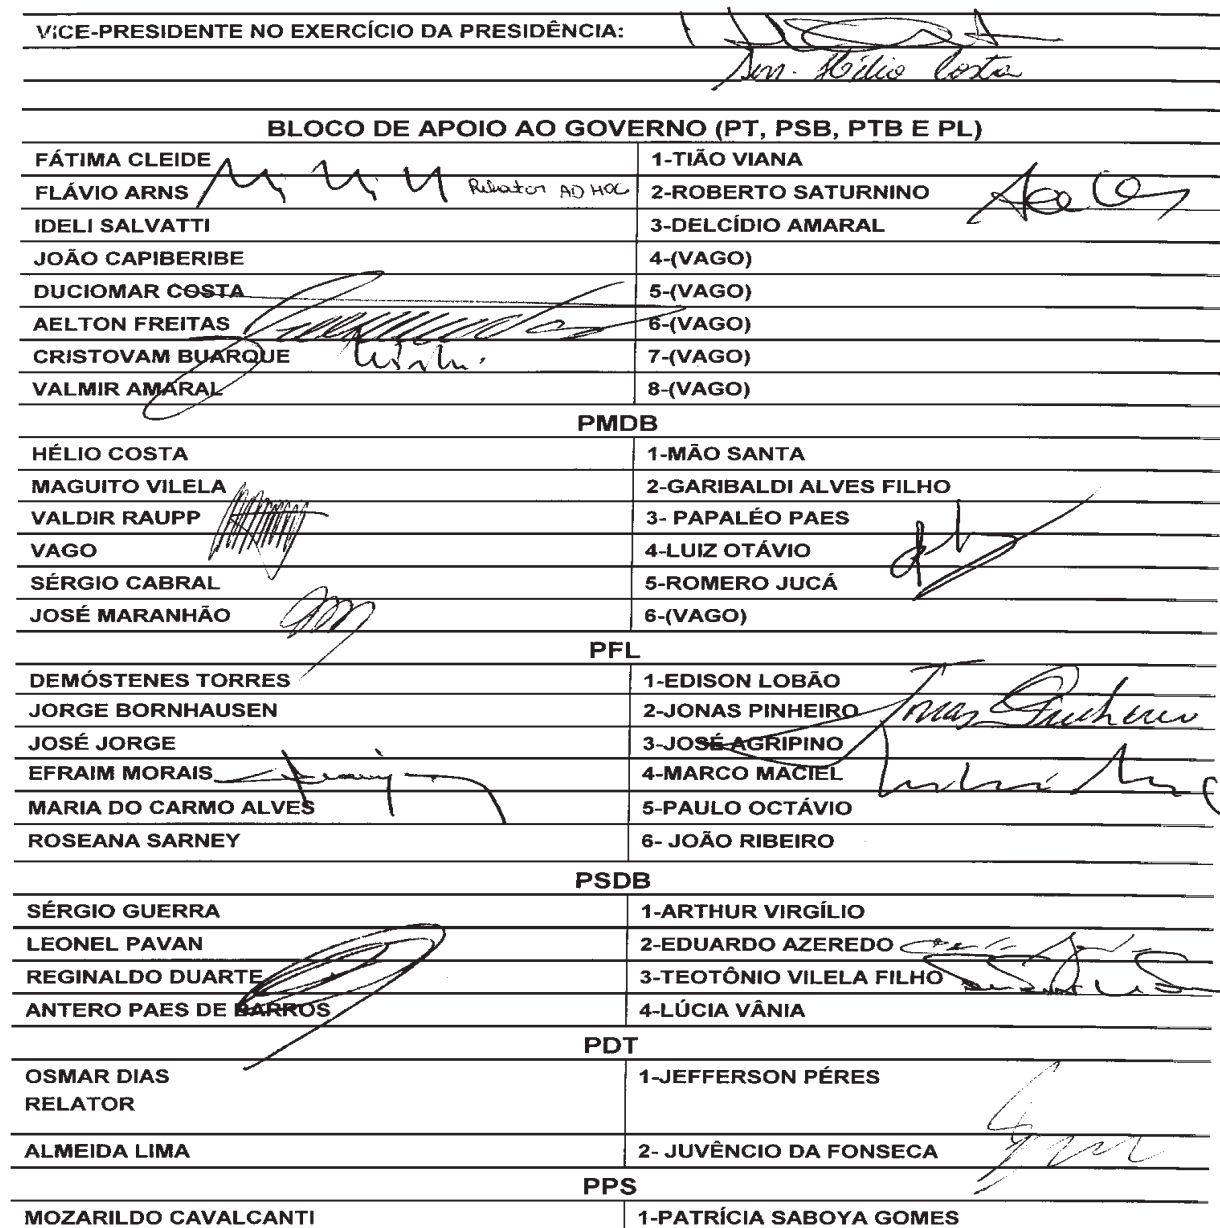 VICE-PRESIDENTE NO EXERCÍCIO DA PRESIDÊNCIA:
Sen. Hélio Costa
BLOCO DE APOIO AO GOVERNO (PT, PSB, PTB E PL)
FÁTIMA CLEIDE 1-TIÃO VIANA
FLÁVIO ARNS Relator AD HOC 2-ROBERTO SATURNINO
IDELI SALVATTI 3-DELCÍDIO AMARAL
JOÃO CAPIBERIBE 4-(VAGO)
DUCIOMAR COSTA 5-(VAGO)
AELTON FREITAS 6-(VAGO)
CRISTOVAM BUARQUE 7-(VAGO)
VALMIR AMARAL 8-(VAGO)
PMDB
HÉLIO COSTA 1-MÃO SANTA
MAGUITO VILELA 2-GARIBALDI ALVES FILHO
VALDIR RAUPP 3- PAPALÉO PAES
VAGO 4-LUIZ OTÁVIO
SÉRGIO CABRAL 5-ROMERO JUCÁ
JOSÉ MARANHÃO 6-(VAGO)
PFL
DEMÓSTENES TORRES 1-EDISON LOBÃO
JORGE BORNHAUSEN 2-JONAS PINHEIRO Jonas Pinheiro
JOSÉ JORGE 3-JOSÉ AGRIPINO
EFRAIM MORAIS 4-MARCO MACIEL
MARIA DO CARMO ALVES 5-PAULO OCTÁVIO
ROSEANA SARNEY 6- JOÃO RIBEIRO
PSDB
SÉRGIO GUERRA 1-ARTHUR VIRGÍLIO
LEONEL PAVAN 2-EDUARDO AZEREDO
REGINALDO DUARTE 3-TEOTÔNIO VILELA FILHO
ANTERO PAES DE BARROS 4-LÚCIA VÂNIA
PDT
OSMAR DIAS 1-JEFFERSON PÉRES
RELATOR
ALMEIDA LIMA 2- JUVÊNCIO DA FONSECA
PPS
MOZARILDO CAVALCANTI 1-PATRÍCIA SABOYA GOMES